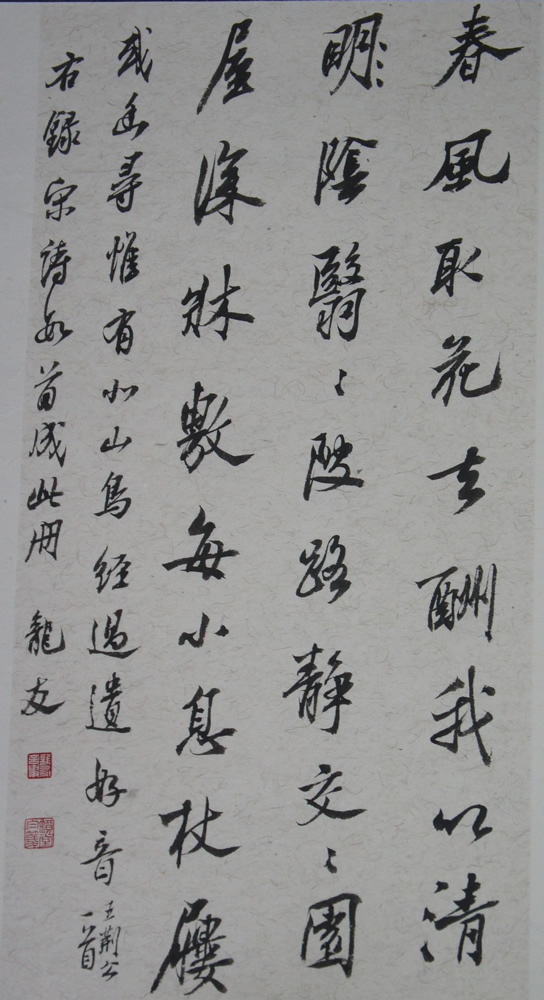 春風取花去酬我以清
明〻陰翳〻陂路靜交〻園
屋深牀敷每小息杖屨
或幽尋惟有北山鳥經過遺好音
王荊公
一首
右錄宋詩數首成此冊 龍友